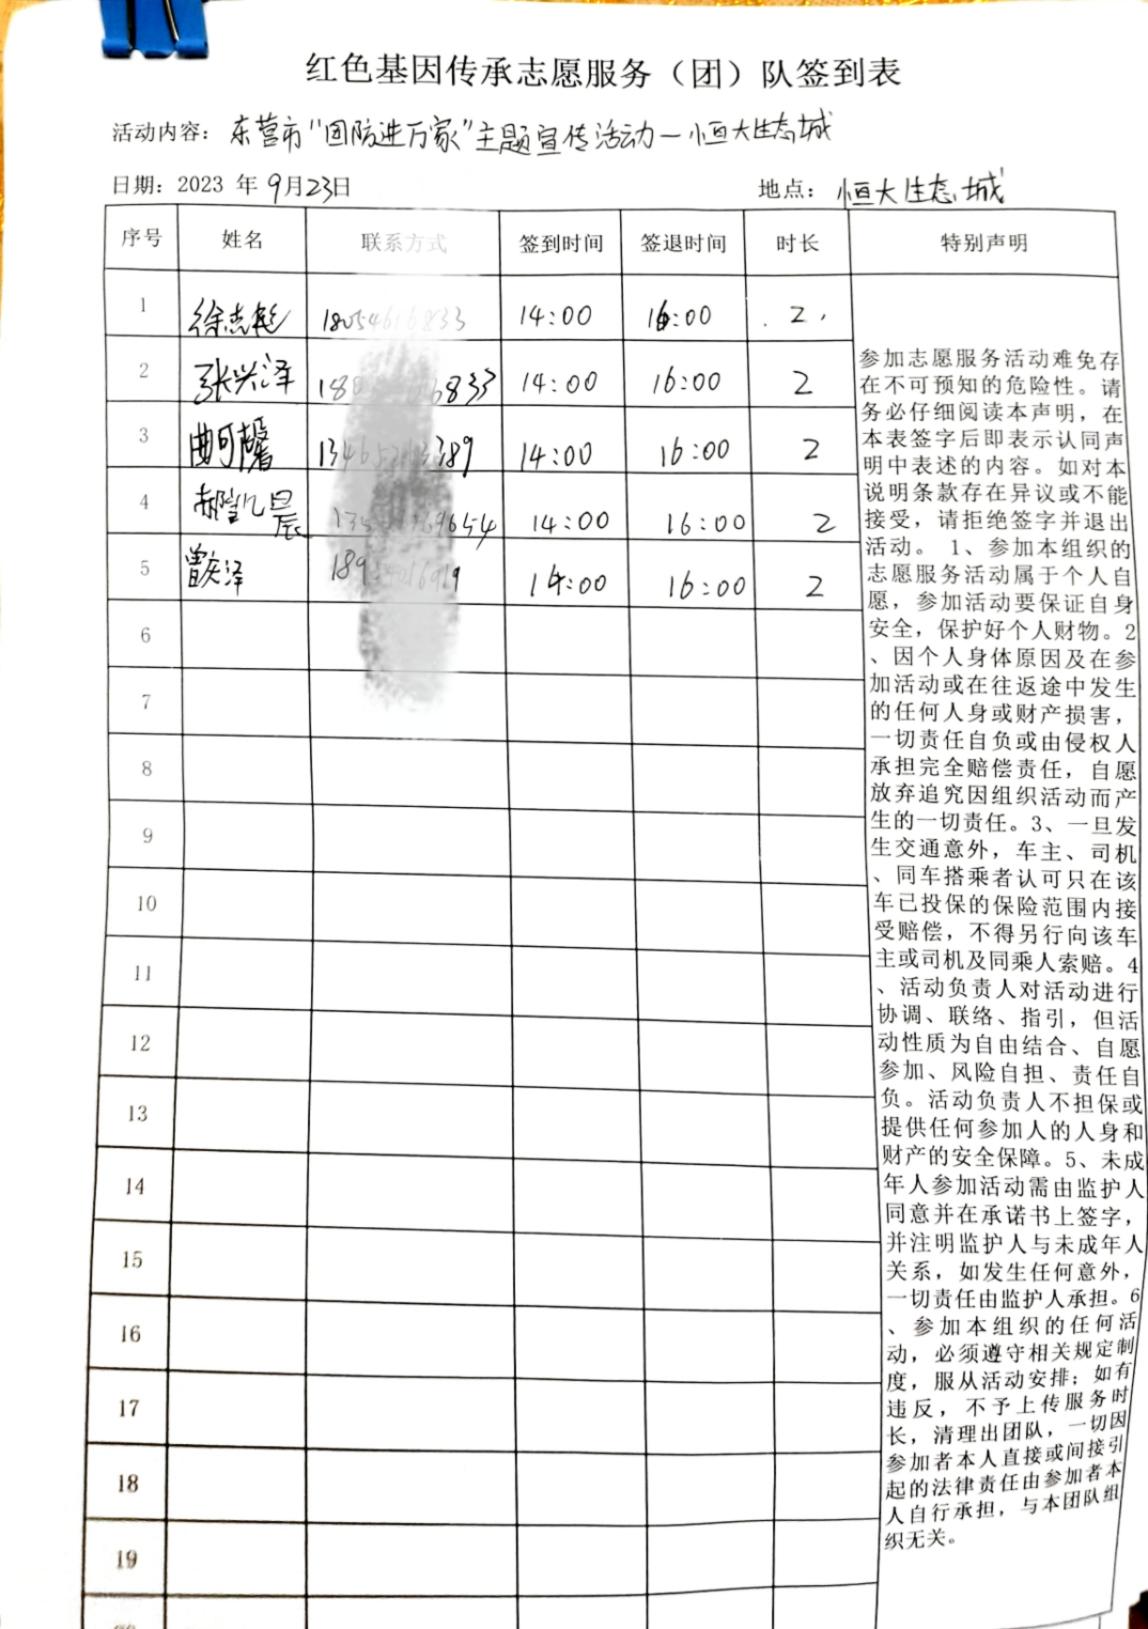 红色基因传承志愿服务（团）队签到表
活动内容：东营市“国防进万家”主题宣传活动—恒大生态城
日期：2023 年 9月23日 地点：恒大生态城
序号 姓名 联系方式 签到时间 签退时间 时长 特别声明
1 徐志彪 14:00 16:00 2
2 张兴泽 14:00 16:00 2
3 曲可馨 14:00 16:00 2
4 14:00 16:00 2
5 14:00 16:00 2
6
7
8
9
10
11
12
13
14
15
16
17
18
19
参加志愿服务活动难免存
在不可预知的危险性。请
务必仔细阅读本声明，在
本表签字后即表示认同声
明中表述的内容。如对本
说明条款存在异议或不能
接受，请拒绝签字并退出
活动。 1、参加本组织的
志愿服务活动属于个人自
愿，参加活动要保证自身
安全，保护好个人财物。2
、因个人身体原因及在参
加活动或在往返途中发生
的任何人身或财产损害，
一切责任自负或由侵权人
承担完全赔偿责任，自愿
放弃追究因组织活动而产
生的一切责任。3、一旦发
生交通意外，车主、司机
、同车搭乘者认可只在该
车已投保的保险范围内接
受赔偿，不得另行向该车
主或司机及同乘人索赔。4
、活动负责人对活动进行
协调、联络、指引，但活
动性质为自由结合、自愿
参加、风险自担、责任自
负。活动负责人不担保或
提供任何参加人的人身和
财产的安全保障。5、未成
年人参加活动需由监护人
同意并在承诺书上签字，
并注明监护人与未成年人
关系，如发生任何意外，
一切责任由监护人承担。6
、参加本组织的任何活
动，必须遵守相关规定制
度，服从活动安排；如有
违反，不予上传服务时
长，清理出团队，一切因
参加者本人直接或间接引
起的法律责任由参加者本
人自行承担，与本团队组
织无关。